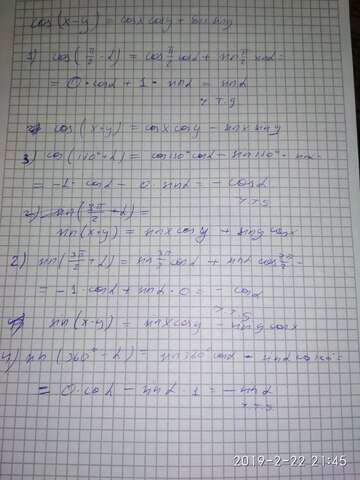 cos(x-y) = cosx cosy + sinx siny
1) cos(π/2 - α) = cos π/2 cosα + sin π/2 sinα =
= 0·cosα + 1·sinα = sinα
ч.т.д
cos(x+y) = cosx cosy - sinx siny
3) cos(180°+α) = cos180° cosα - sin180°· sinα=
= -1· cosα - 0· sinα = - cosα
ч.т.д
2) sin(3π/2 + α) =
sin(x+y) = sinx cosy + siny cosx
2) sin(3π/2 + α) = sin 3π/2 cosα + sinα cos 3π/2 =
= -1·cosα + sinα·0 = - cosα
ч.т.д
sin(x-y) = sinx cosy - siny cosx
4) sin(360° - α) = sin360° cosα - sinα cos360° =
= 0·cosα - sinα·1 = - sinα
ч.т.д.
2019-2-22 21:45